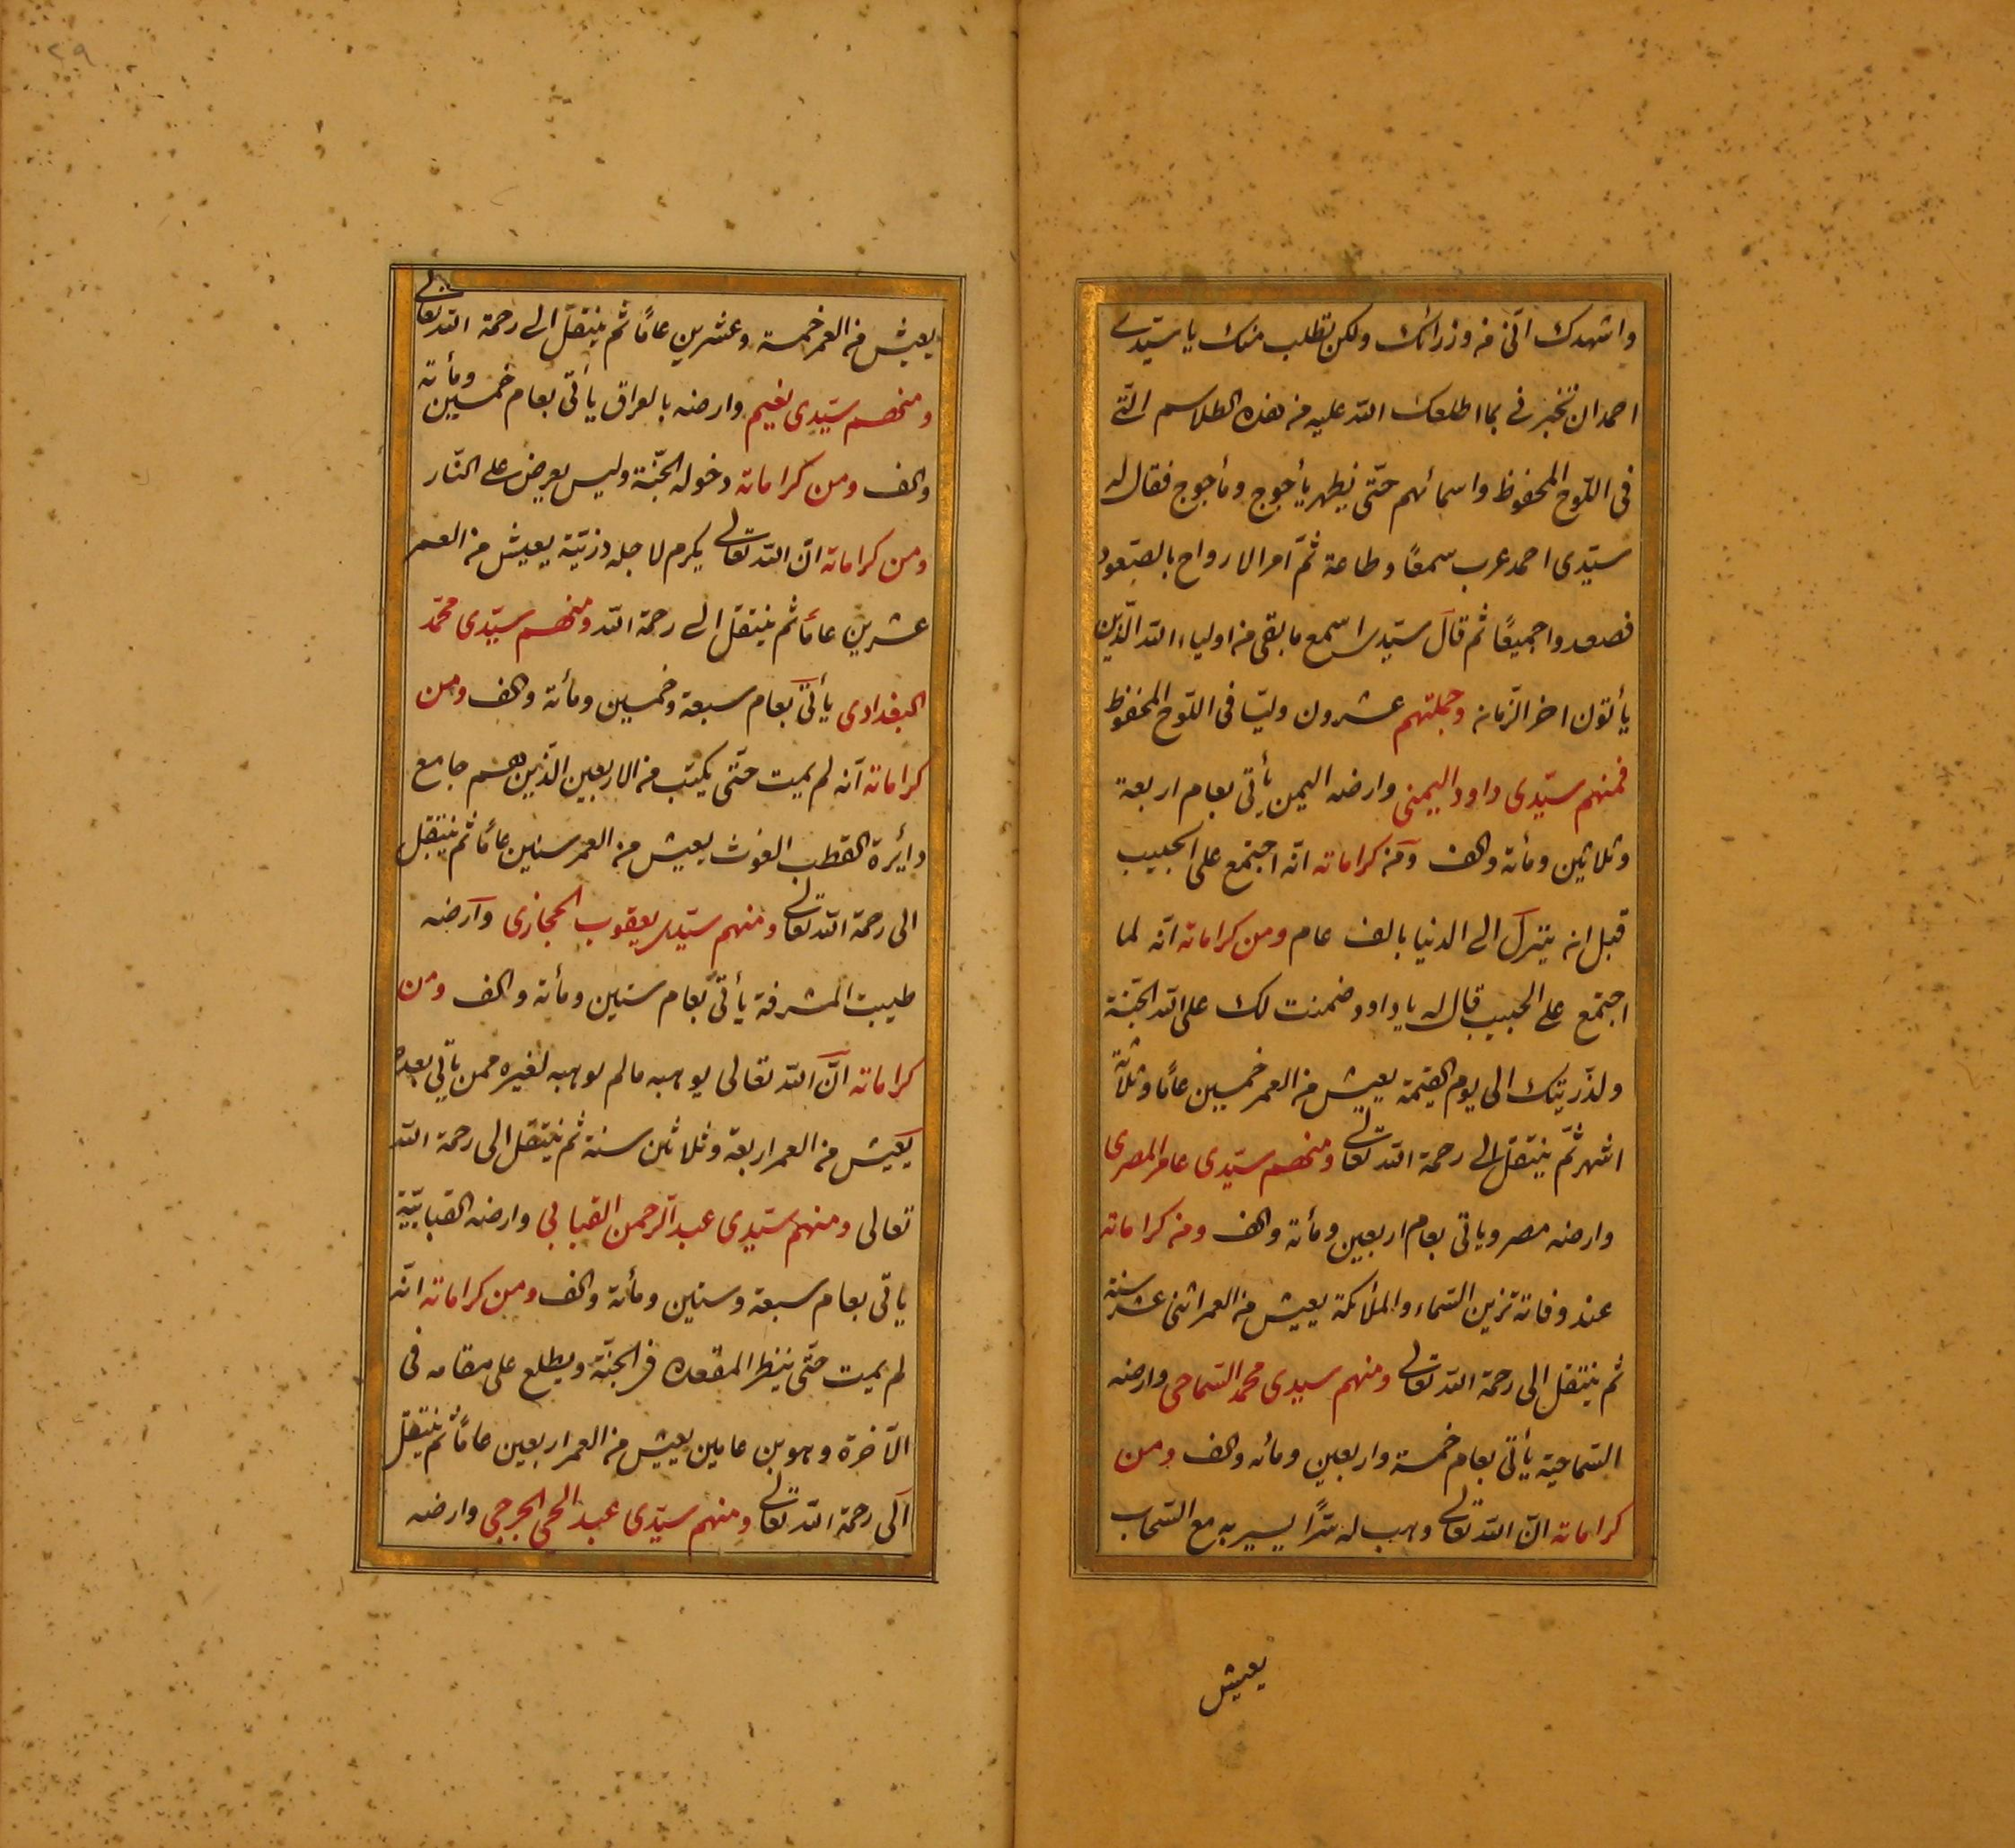 واشهدك انّى من وزرائك ولكن نطلب منك يا سيّدى
احمد ان تخبرنى بما اطلعك الله عليه من هذه الطلاسم التّى
فى اللّوح المحفوظ واسمائهم حتّى يظهر يأجوج ومأجوج فقال له
سيّدى احمد عرب سمعًا وطاعة ثمّ امر الارواح بالصّعود
فصعدوا جميعًا ثم قال سيّدى اسمع ما بقى من اولياء الله الّذين
يأتون اخر الزّمان وجملتهم عشرون وليّا فى اللّوح المحفوظ
فمنهم سيّدى داود اليمنى وارضه اليمن يأتى بعام اربعة
وثلاثين ومأته والف ومن كراماته انّه اجتمع على الحبيب
قبل ان ينزل الى الدنيا بالف عام ومن كراماته انّه لما
اجتمع على الحبيب قال له يا داود ضمنت لك على الله الجنّة
ولذرّيتك الى يوم القيمة يعيش من العمر خمسين عامًا وثلاثة
اشهر ثمّ ينتقل الى رحمة الله تعالى ومنهم سيّدى عامر المصرى
وارضه مصر وياتى بعام اربعين ومأته والف ومن كراماته
عند وفاته تزين السّماء والملائكة يعيش من العمر اثنى عشر سنة
ثم ينتقل الى رحمة الله تعالى ومنهم سيدى محمد السّماحى وارضه
السّماحية يأتى بعام خمسة واربعين ومأته والف ومن
كراماته انّ الله تعالى وهب له سّرًا يسير به مع السّحاب
يعيش
٢٩
يعيش من العمر خمسة وعشرين عامًا ثم ينتقل الى رحمة الله تعالى
ومنهم سيّدى نعيم وارضه بالعراق يأتى بعام خمسين ومأته
والف ومن كراماته دخوله الجنّة وليس يعرض على النّار
ومن كراماته انّ الله تعالى يكرم لاجله ذرّيّة يعيش من العمر
عشرين عامًا ثم ينتقل الى رحمة الله ومنهم سيّدى محمّد
البغدادى يأتى بعام سبعة وخمسين ومأته والف ومن
كراماته انّه لم يميت حتّى يكتب من الاربعين الّذين هم جامع
دأيرة القطب الغوث يعيش من العمر ستين عامًا ثم ينتقل
الى رحمة الله تعالى ومنهم سيّدى يعقوب الحجازى وارضه
طيبت المشرفة يأتى بعام ستين ومأته والف ومن
كراماته انّ الله تعالى يوهبه مالم يوهبه لغيره ممن ياتى بعده
يعيش من العمر اربعة وثلاثين سنة ثم ينتقل الى رحمة الله
تعالى ومنهم سيّدى عبد الرّحمن القبابى وارضه القبابيّة
ياتى بعام سبعة وستين ومأته والف ومن كراماته انّه
لم يميت حتّى ينظر المقعده فى الجنّة ويطلع على مقامه فى
الآخرة وهو بن عامين يعيش من العمر اربعين عامًا ثم ينتقل
الى رحمة الله تعالى ومنهم سيّدى عبد الحى الجرجى وارضه